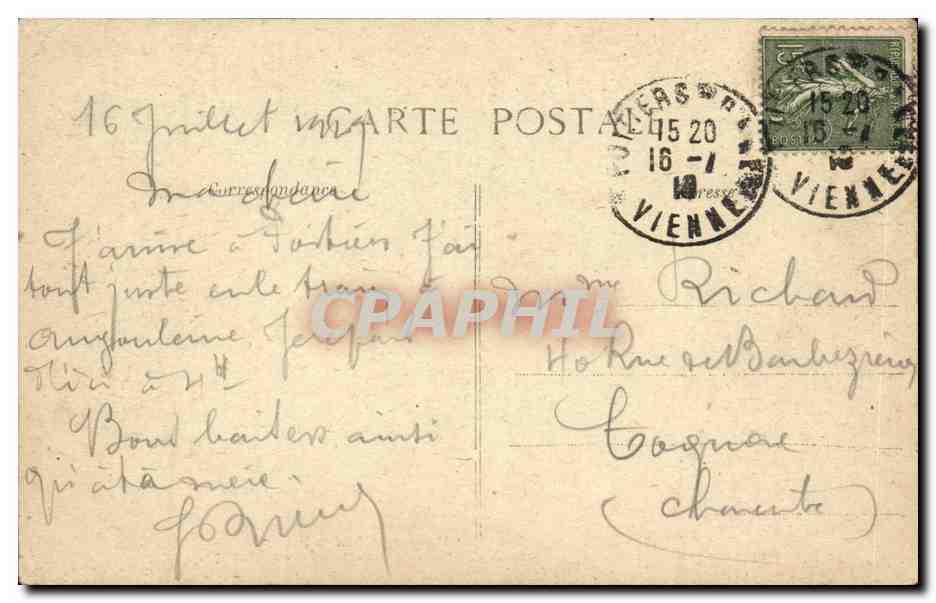 CARTE POSTALE
16 Juillet 1919
Correspondance
Adresse
ma chérie
J'arrive à Poitiers J'ai
tout juste eu le train à
Angouleme Je repars
d'ici à 4H
Bons baisers ainsi
qu'à ta mère.
Mme Richard
40 Rue de Barbezieux
Cognac
(Charente)
POITIERS
15 20
16 - 7
19
VIENNE
15 20
16 - 7
19
VIENNE
15
POSTES
CPAPHIL